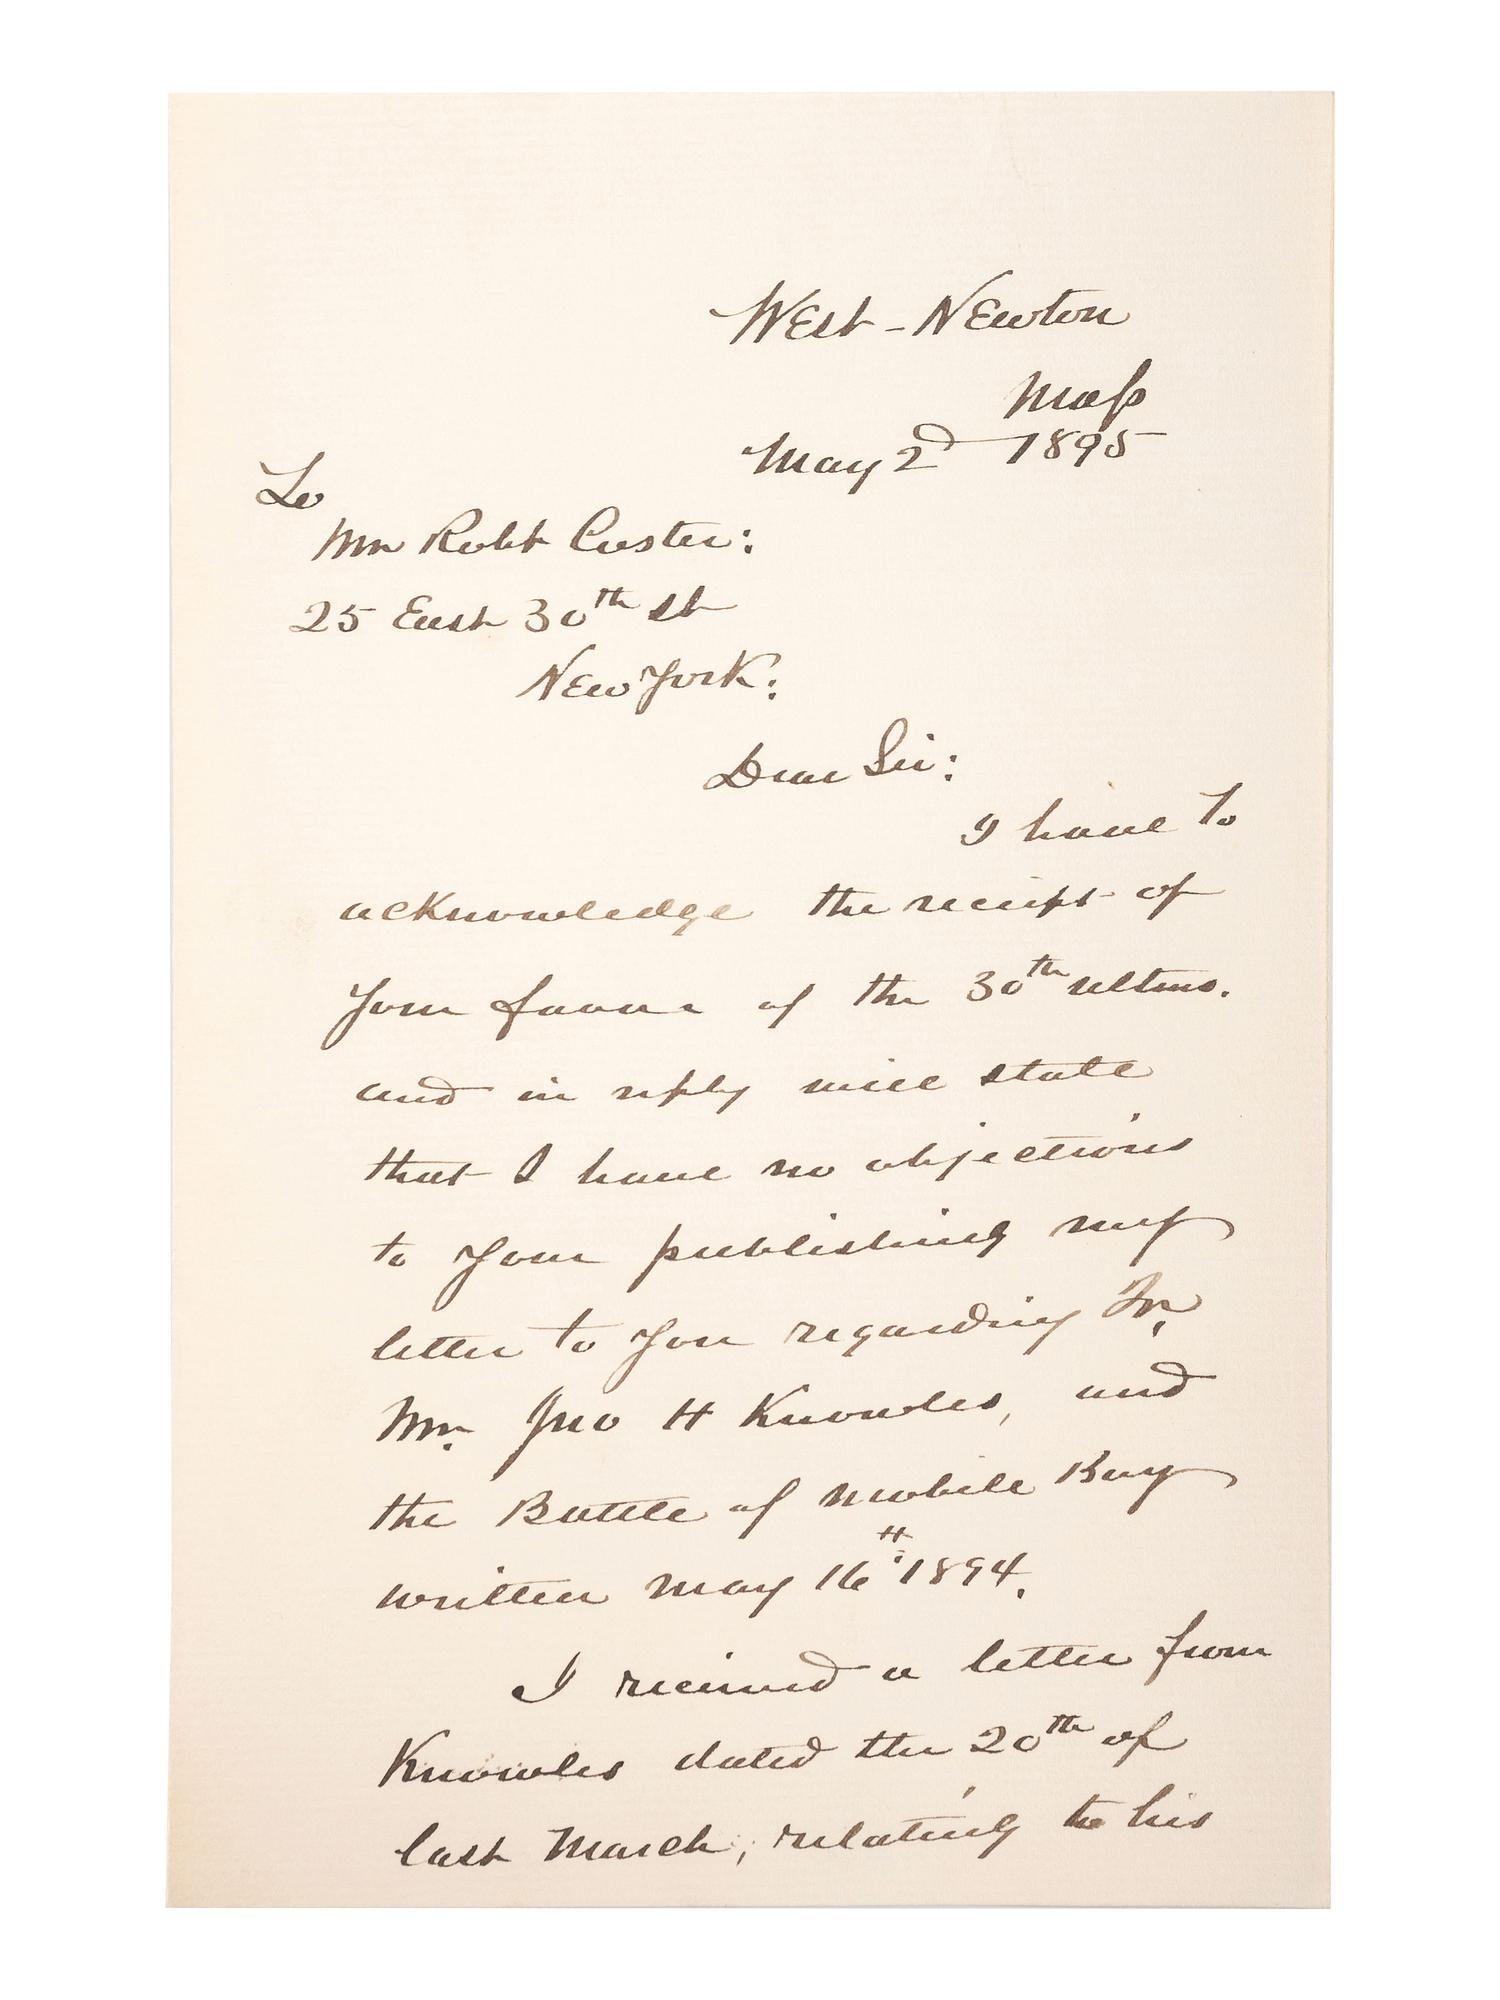 West-Newton
Mass
May 2d 1895
To
Mr Robt Coster:
25 East 30th st
New York:
Dear Sir:
I have to
acknowledge the receipt of
your favor of the 30th ultimo.
and in reply will state
that I have no objections
to your publishing my
letter to you regarding
Mr. Jno H Knowles, and
the Battle of Mobile Bay
written May 16th 1894.
I received a letter from
Knowles dated the 20th of
last March, relating to his